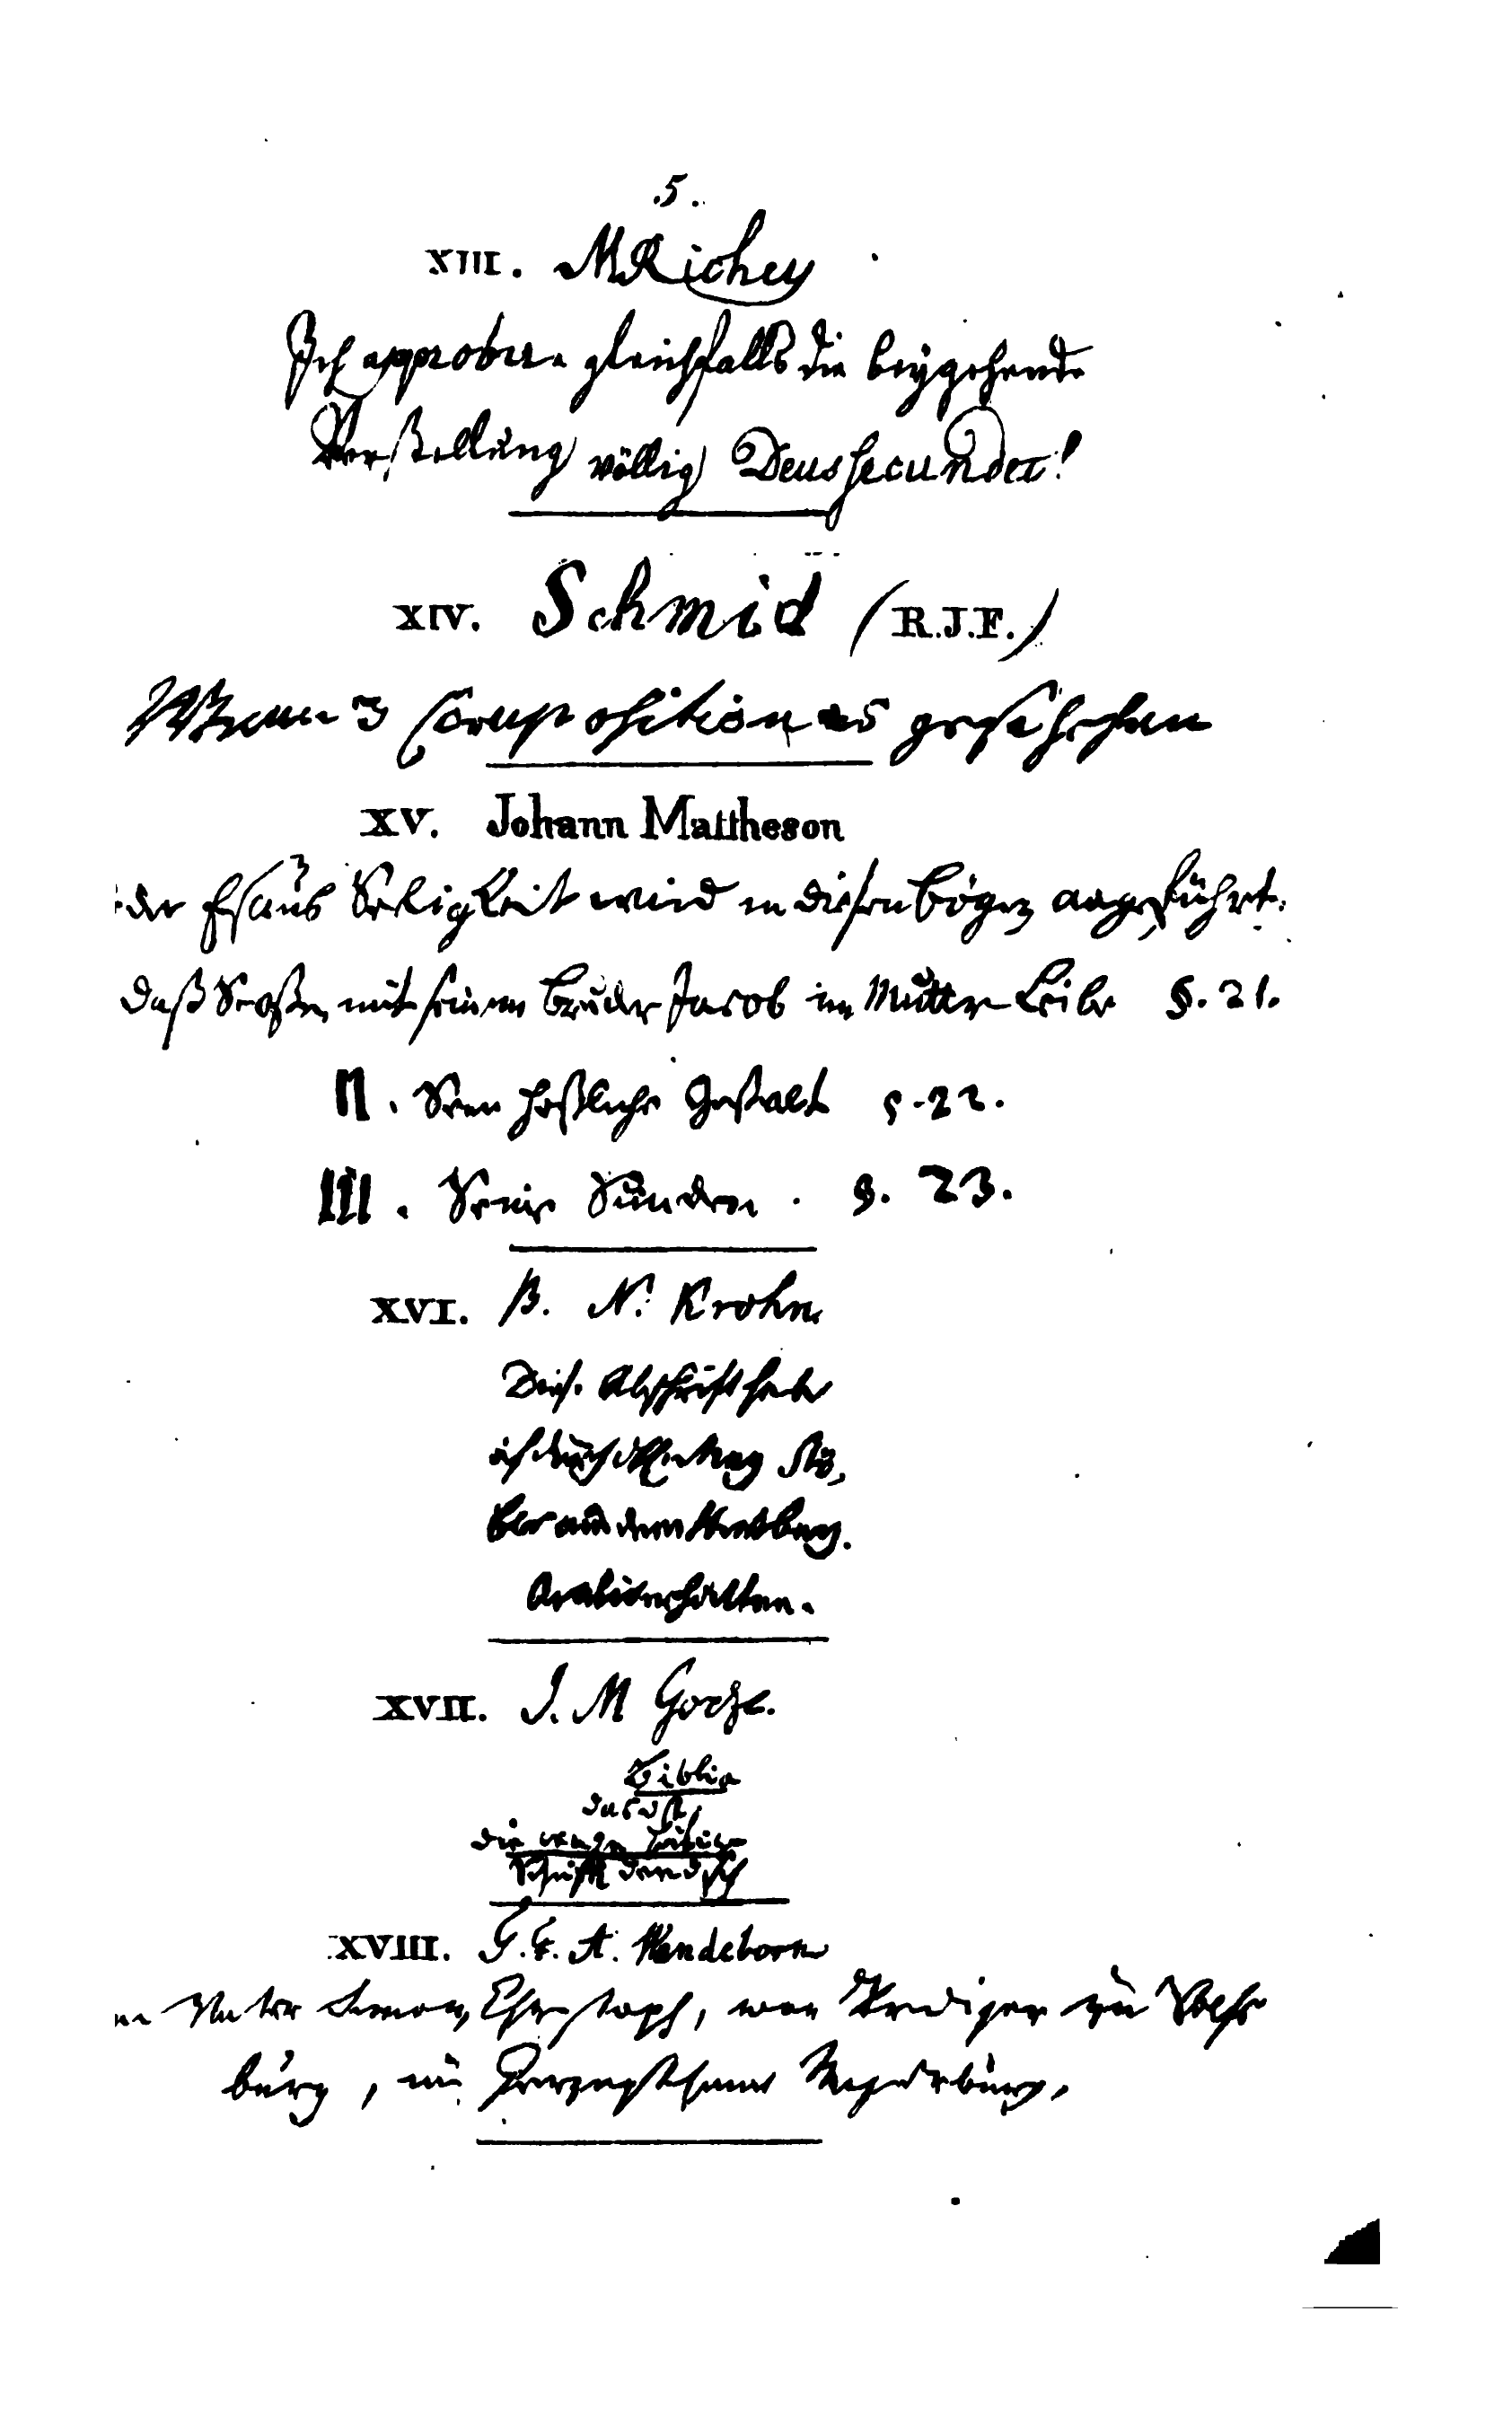 5.
XIII. MRichey
Ich approbire gleichfalls die beygehende
Vorstellung völlig Deus secundet!
XIV. Schmid (R.J.F.)
Wann 3 Compositiones geschehen
XV. Johann Mattheson
der Esaus Seligkeit wird in diesen bögen angeführt.
daß Stoßen mit seinem bruder Jacob im Mutter Leibe §. 21.
II. Seine heßliche Gestalt §. 22.
III. Seine Sünden. §. 23.
XVI. B. N. Krohn.
Diese Abschrift habe
ich durch Stö,
ber aus dem
erhalten.
XVII. J. M Goeze.
Biblia
dat ist,
die gantze heilige
Schrifft dendsch
XVIII. G. F. A. Wendeborn
Vater Simon, Christoph, war Prediger zu Wolfs
burg, im Herzogthume Magdeburg,